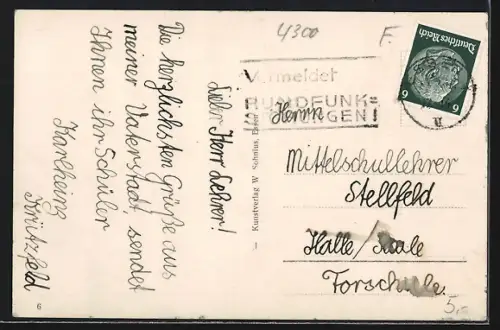 4300
F.
Vermeidet
RUNDFUNK=
STÖRUNGEN!
Deutsches Reich
6 6
Lieber Herr Lehrer!
Die herzlichsten Grüße aus
meiner Vaterstadt, sendet
Ihnen ihr Schüler
Karlheinz
Krützfeld
Kunstverlag W. Schulus,
Herrn
Mittelschullehrer
Stellfeld
Halle/Saale
Torschule.
5.-
6